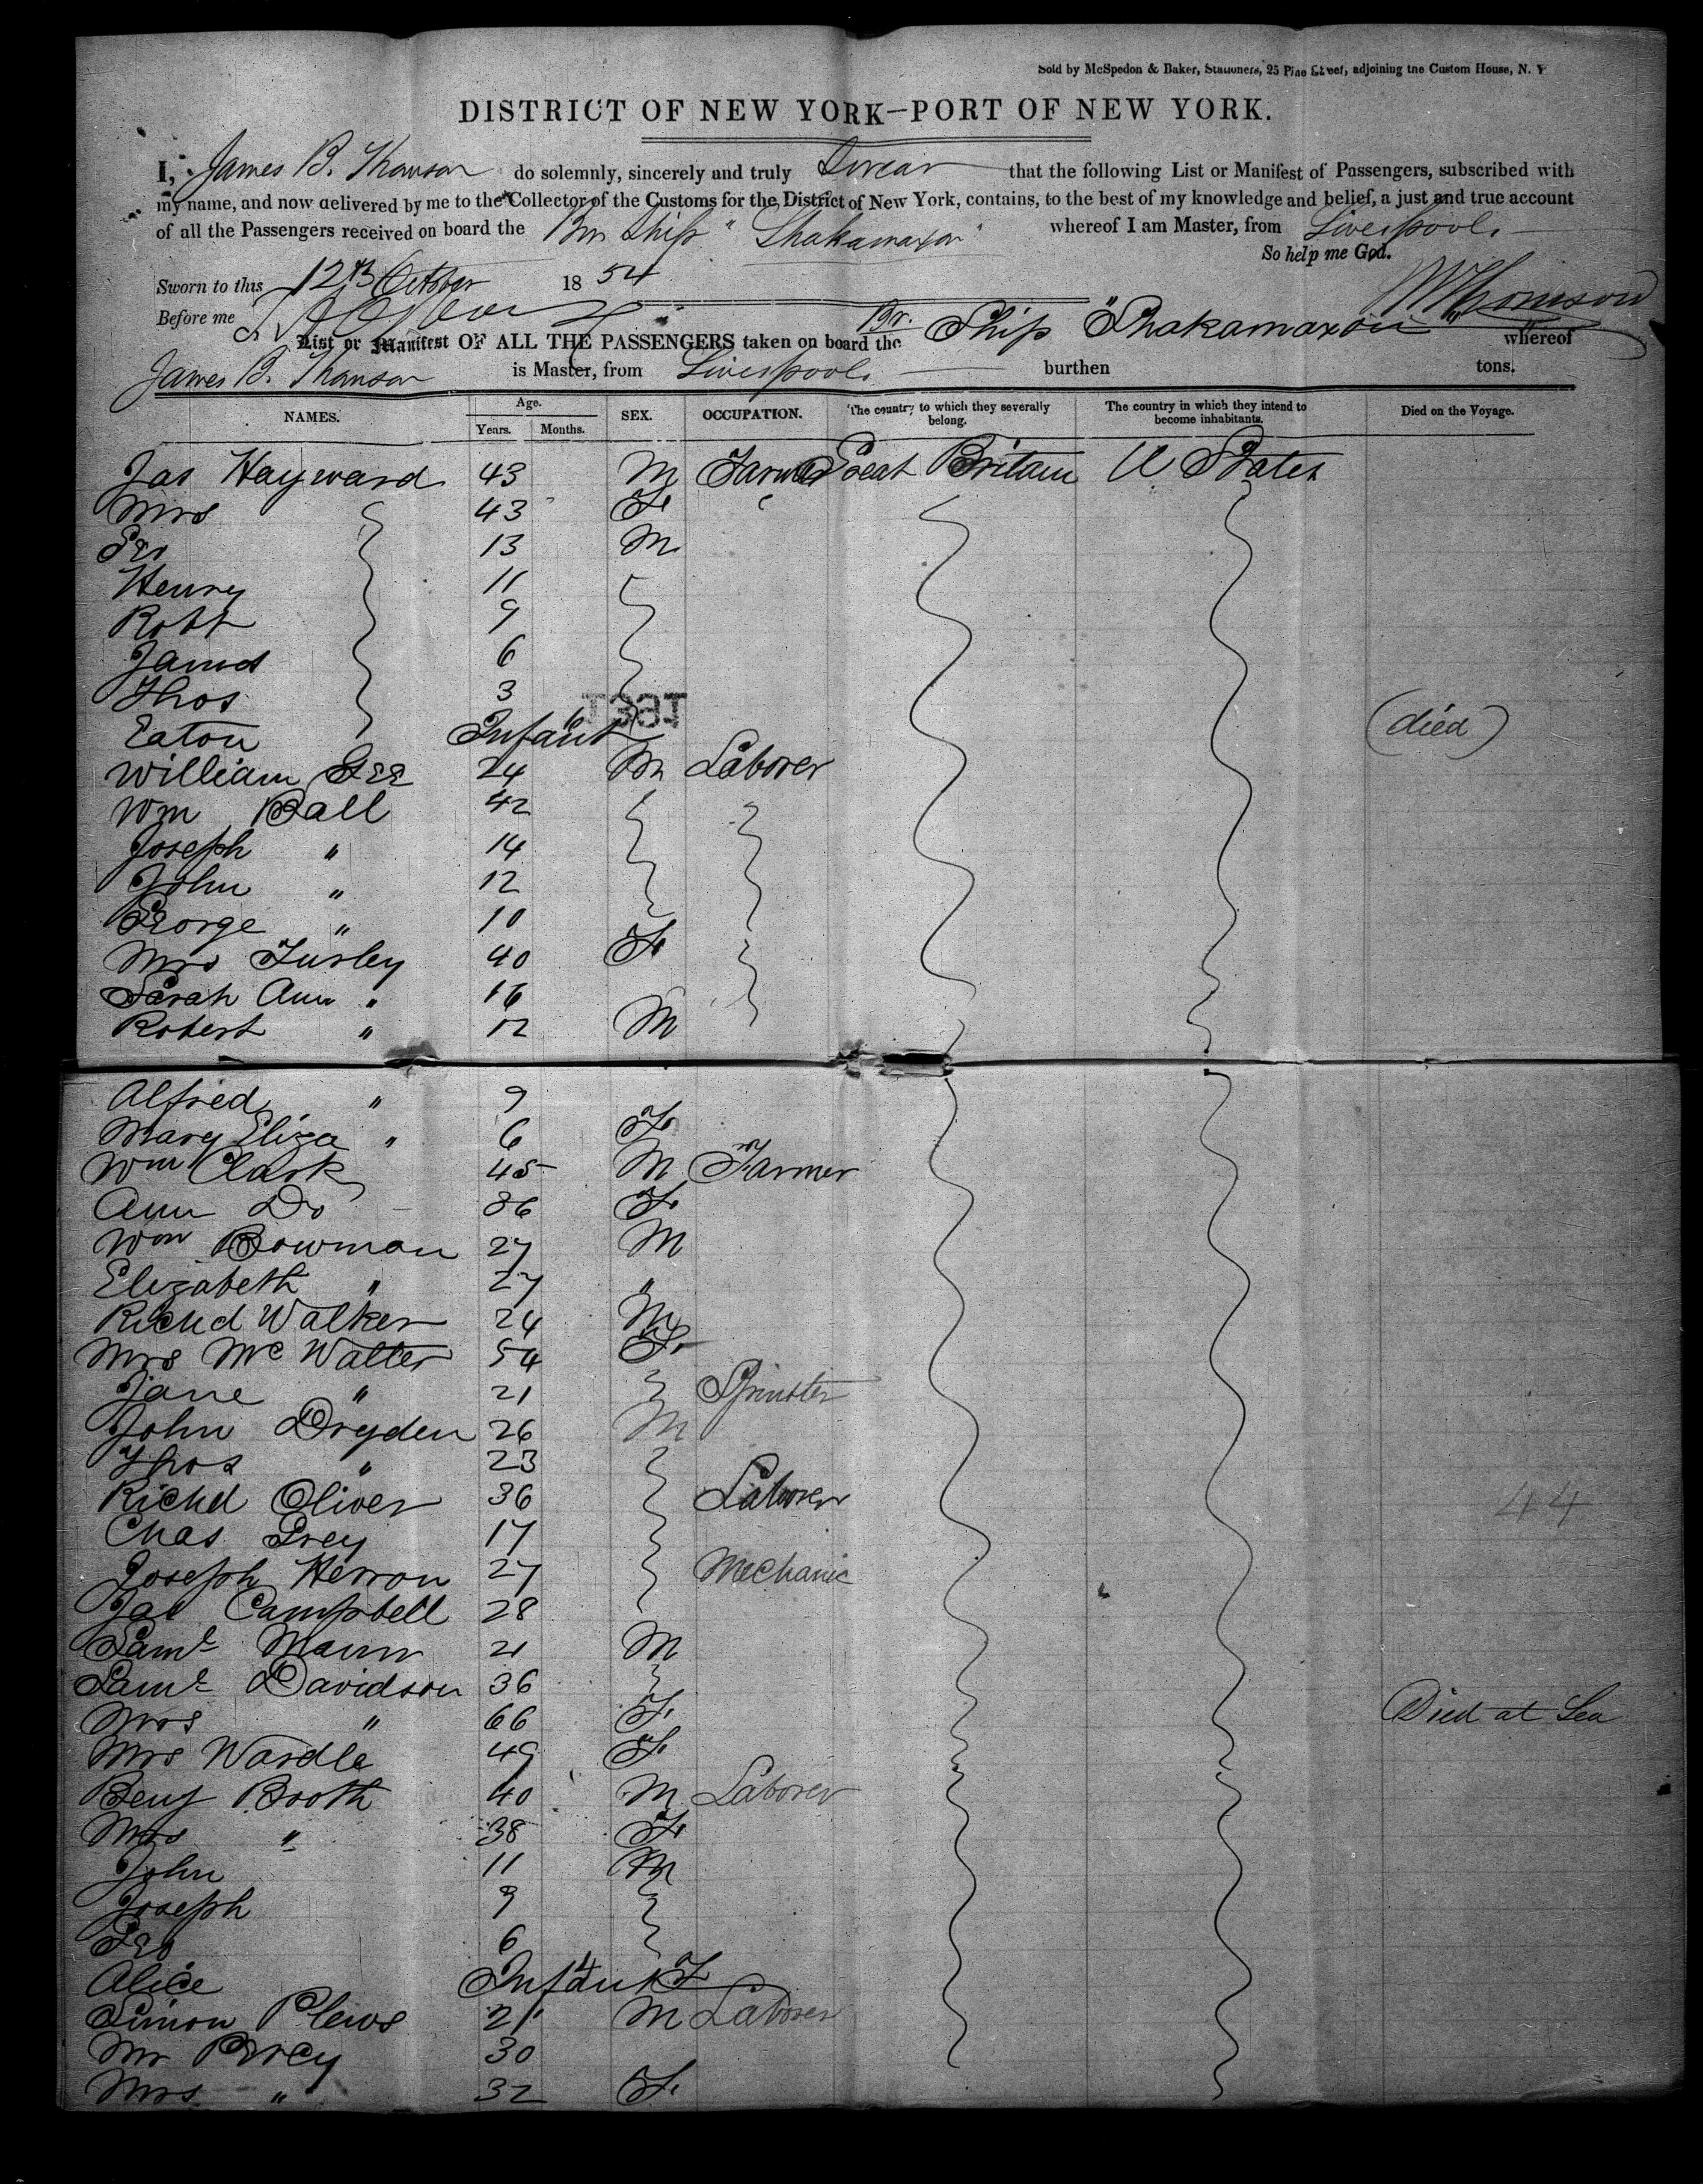 Sold by McSpedon & Baker, Stationers, 25 Pine Street, adjoining the Custom House, N. Y
DISTRICT OF NEW YORK—PORT OF NEW YORK.
I, James B. Thomson do solemnly, sincerely and truly Swear that the following List or Manifest of Passengers, subscribed with
my name, and now delivered by me to the Collector of the Customs for the District of New York, contains, to the best of my knowledge and belief, a just and true account
of all the Passengers received on board the Br Ship "Shakamaxon" whereof I am Master, from Liverpool.
So help me God.
Sworn to this 12th October 1854
Thomson
Before me
List or Manifest OF ALL THE PASSENGERS taken on board the Br. Ship "Shakamaxon" whereof
James B. Thomson is Master, from Liverpool. burthen tons.
NAMES. Age. Years. Months. SEX. OCCUPATION. The country to which they severally belong. The country in which they intend to become inhabitants. Died on the Voyage.
Jas Hayward 43 M Farmer Great Britain U States
Mrs 43 F
Geo 13 M
Henry 11
Robt 9
James 6
Thos 3
Eaton Infant (died)
William Gee 24 M Laborer
Wm Ball 42
Joseph " 14
John " 12
George " 10
Mrs Furley 40 F
Sarah Ann " 16
Robert " 12 M
Alfred " 9
Mary Eliza " 6 F
Wm Clark 45 M Farmer
Ann Do 36 F
Wm Bowman 27 M
Elizabeth " 27 "
Richd Walker 24 M
Mrs McWatter 54 F
Jane " 21 Spinster
John Dryden 26 M
Thos " 23
Richd Oliver 36 Laborer
44
Chas Grey 17
Joseph Herron 27 Mechanic
Jas Campbell 28
Saml Mann 21 M
Saml Davidson 36
Mrs " 66 F Died at Sea
Mrs Wardle 49 F
Benj Booth 40 M Laborer
Mrs " 38 F
John 11 M
Joseph 9
Geo 6
Alice Infant F
Simon Plews 21 M Laborer
Mr Percy 30
Mrs " 32 F